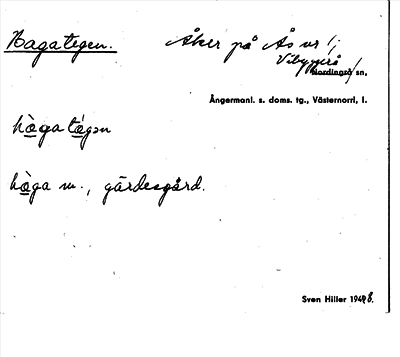 Hagategen. Åker på Ås nr 1;
Vibyggerå
Nordingrå sn,
Ångermanl. s. doms. tg., Västernorrl, l.
hàgatégən
hàga m., gärdesgård.
Sven Hiller 1948.